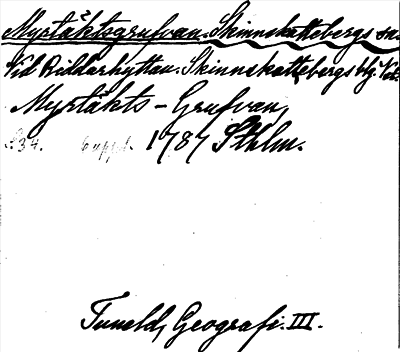 Myrtäktsgrufvan. Skinnskattebergs sn.
Vid Riddarhyttan. Skinnskattebergs blg. Vstm.
Myrtäkts - Grufvan,
s. 34. 6 uppl. 1787 Sthlm.
Tuneld, Geografi. III.